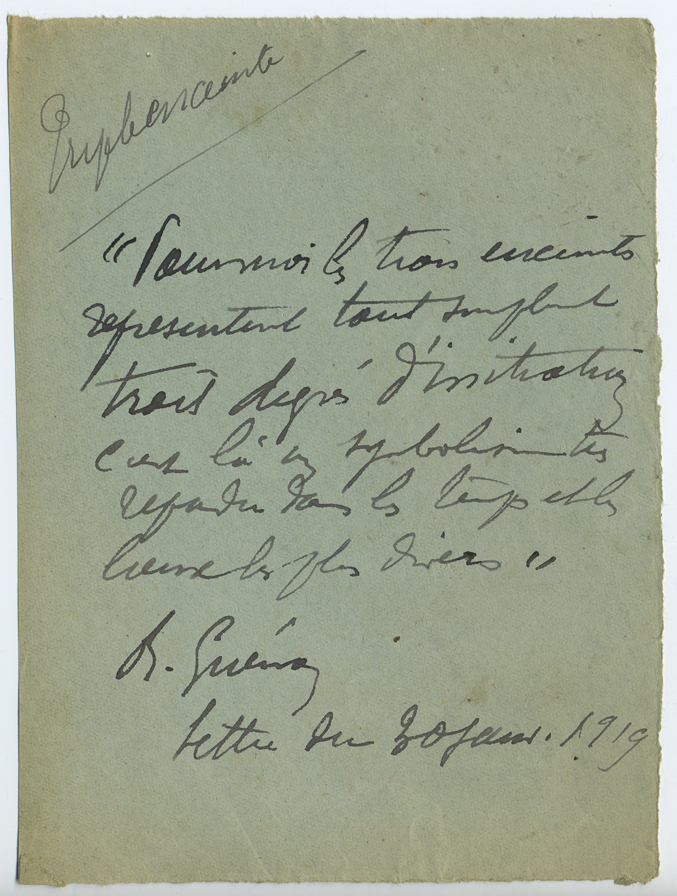 Triple enceinte
"Pour moi les trois enceintes
représentent tout simplement
trois degrés d'initiation
c'est là un symbolisme très
répandu dans les temps et les
lieux les plus divers"
R. Guénon
lettre du 30 janv. 1919